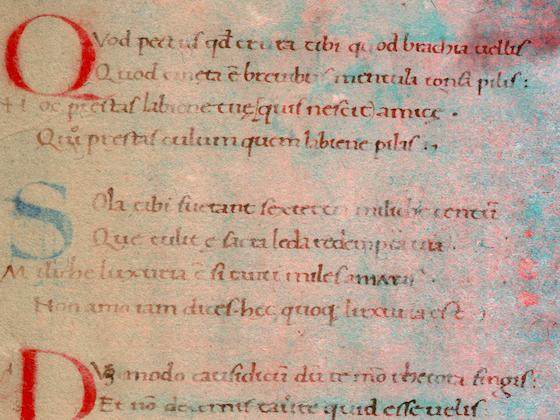 Quod pectus qđ crura tibi quod brachia uellis
Quod cincta ē breuibus mentula tonsa pilis :
Hoc prestas labiene tuę (quis nescit) amicę .
Qui prestas culum quem labiene pilas .,
Sola tibi fuerant sextercia miliche centū
Que tulit e sacra leda redempta uia .
Miliche luxuria ē si tanti miles amares
Non amo iam dices hec quoq luxuria est
Dū modo causidicū dū te mō rhetora fingis :
Et nō decernis taure quid esse uelis